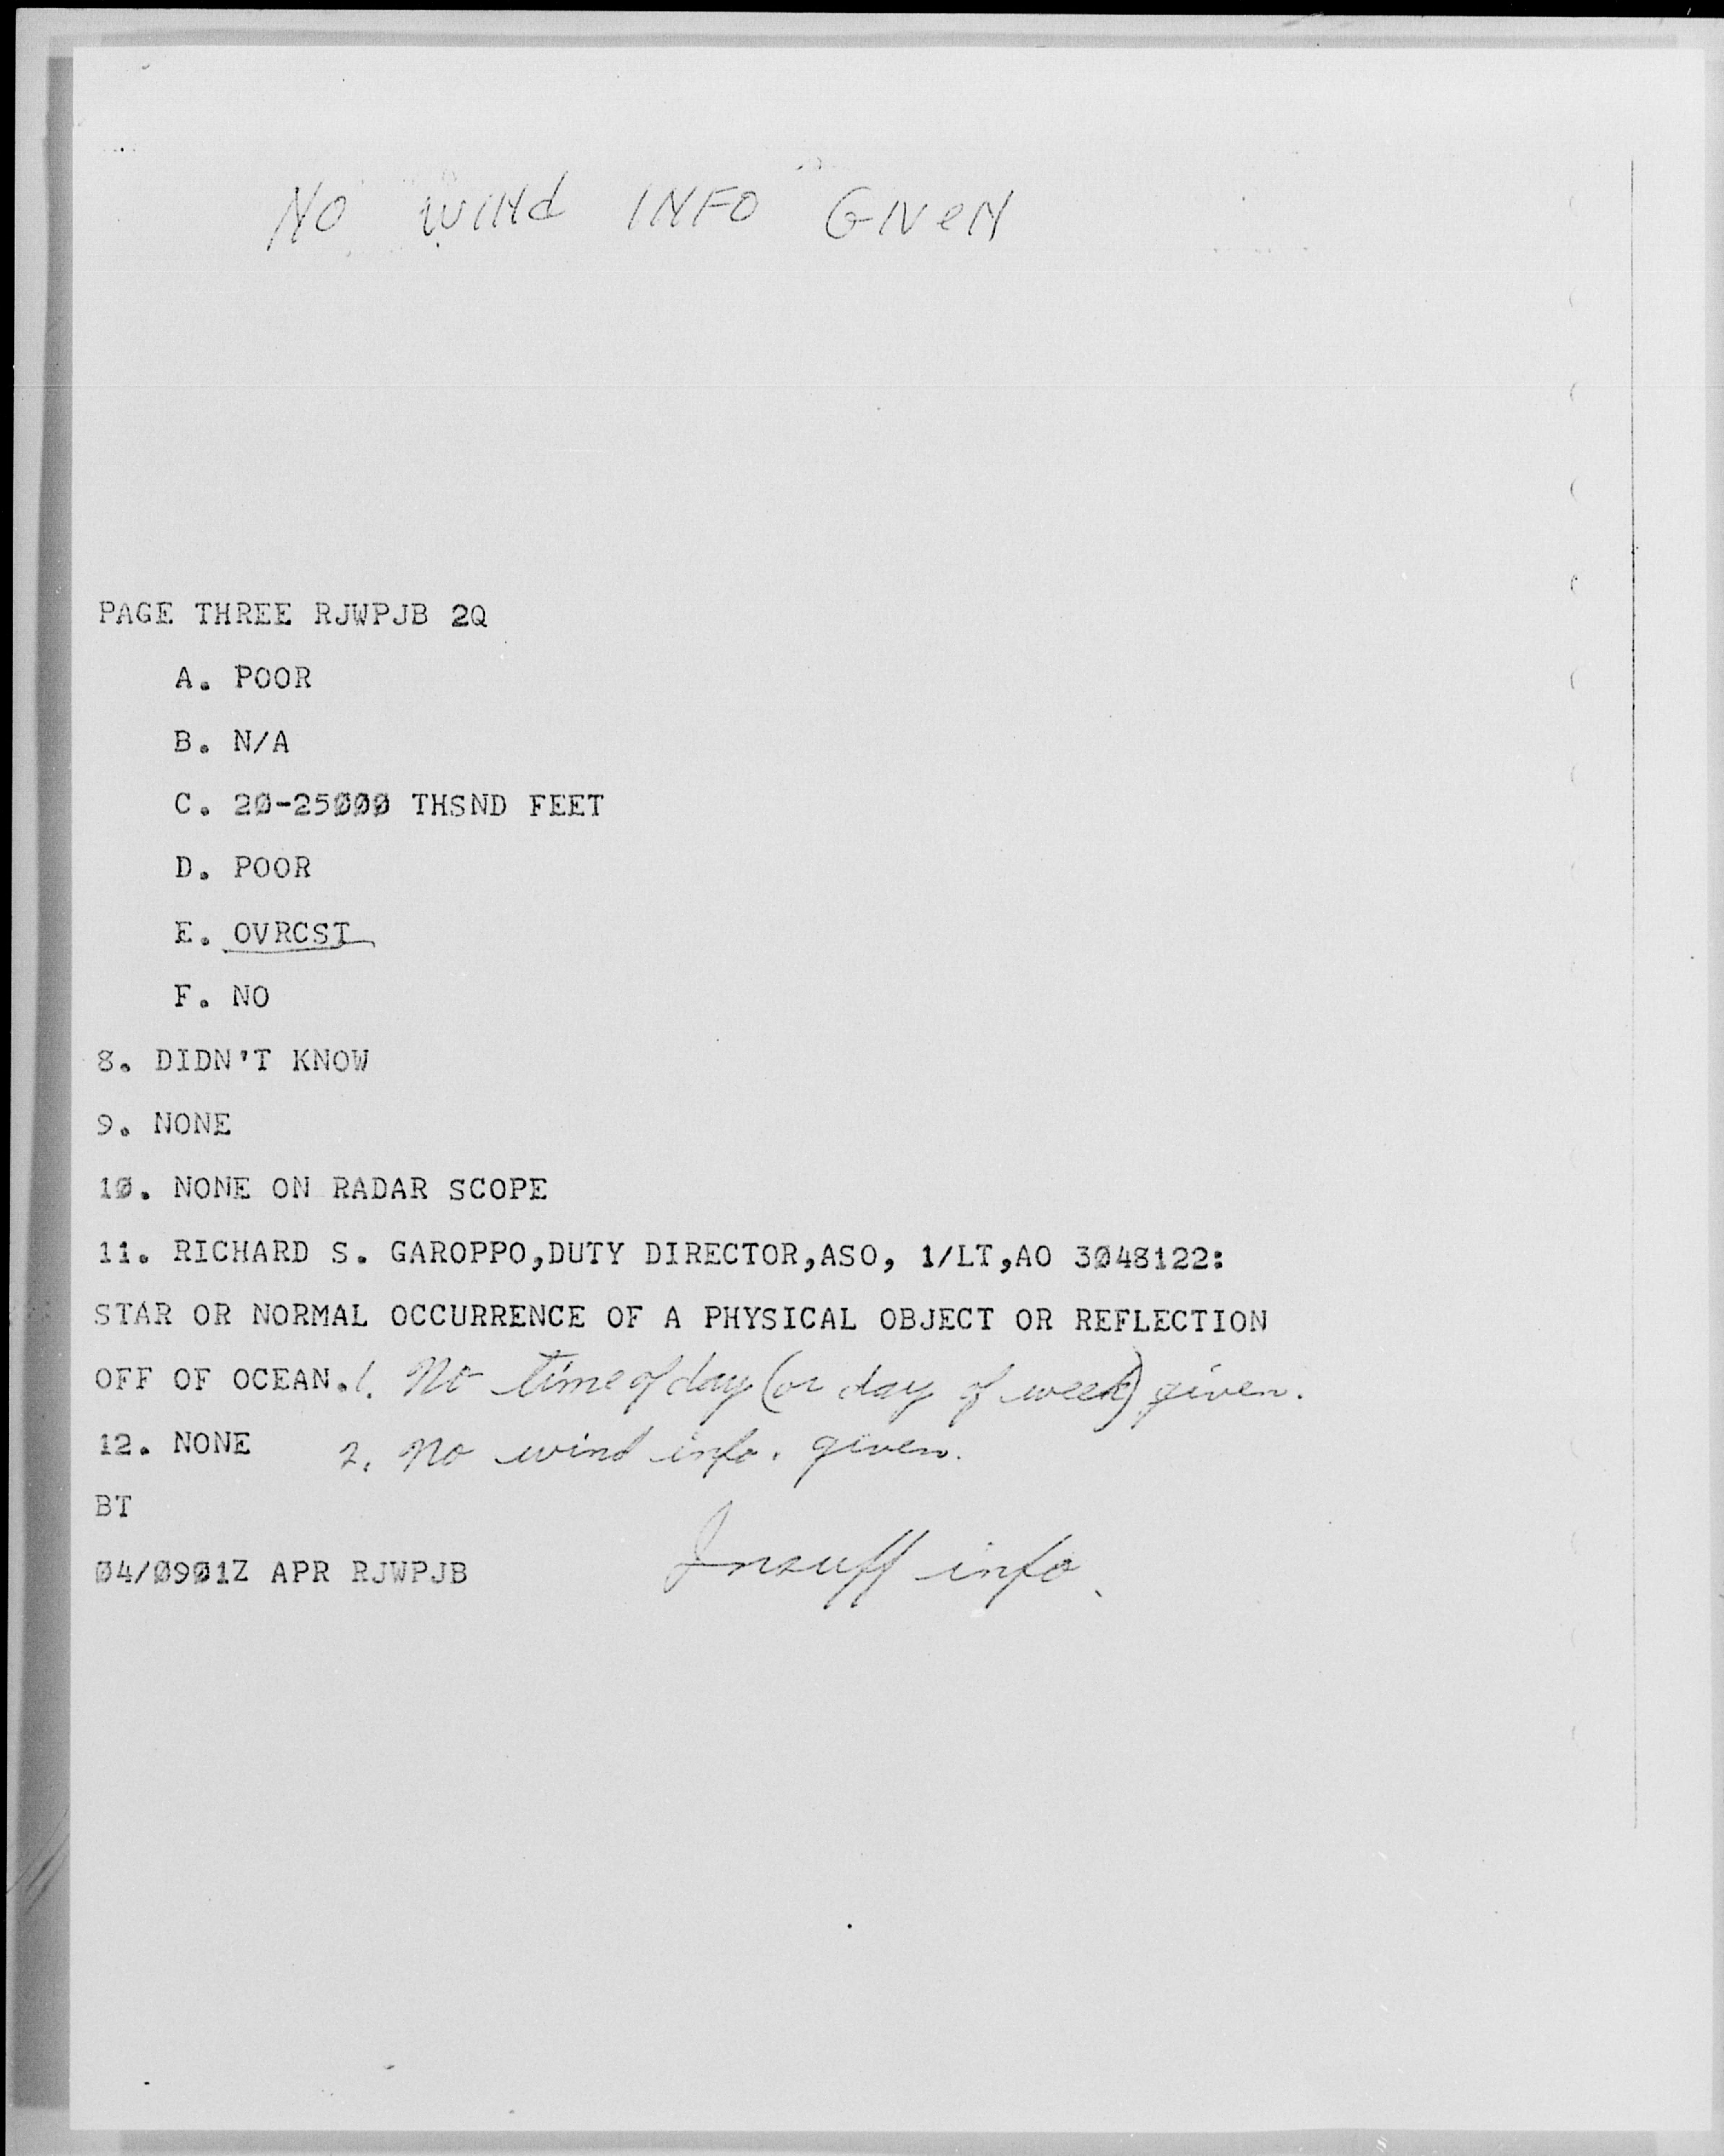 NO WINd INFO GIVeN
PAGE THREE RJWPJB 2Q
A. POOR
B. N/A
C. 20-25000 THSND FEET
D. POOR
E. OVRCST
F. NO
8. DIDN'T KNOW
9. NONE
10. NONE ON RADAR SCOPE
11. RICHARD S. GAROPPO,DUTY DIRECTOR,ASO, 1/LT,AO 3048122:
STAR OR NORMAL OCCURRENCE OF A PHYSICAL OBJECT OR REFLECTION
OFF OF OCEAN. 1. No time of day (or day of week) given.
12. NONE 2. No wind info. given.
BT
Insuff info.
04/0901Z APR RJWPJB